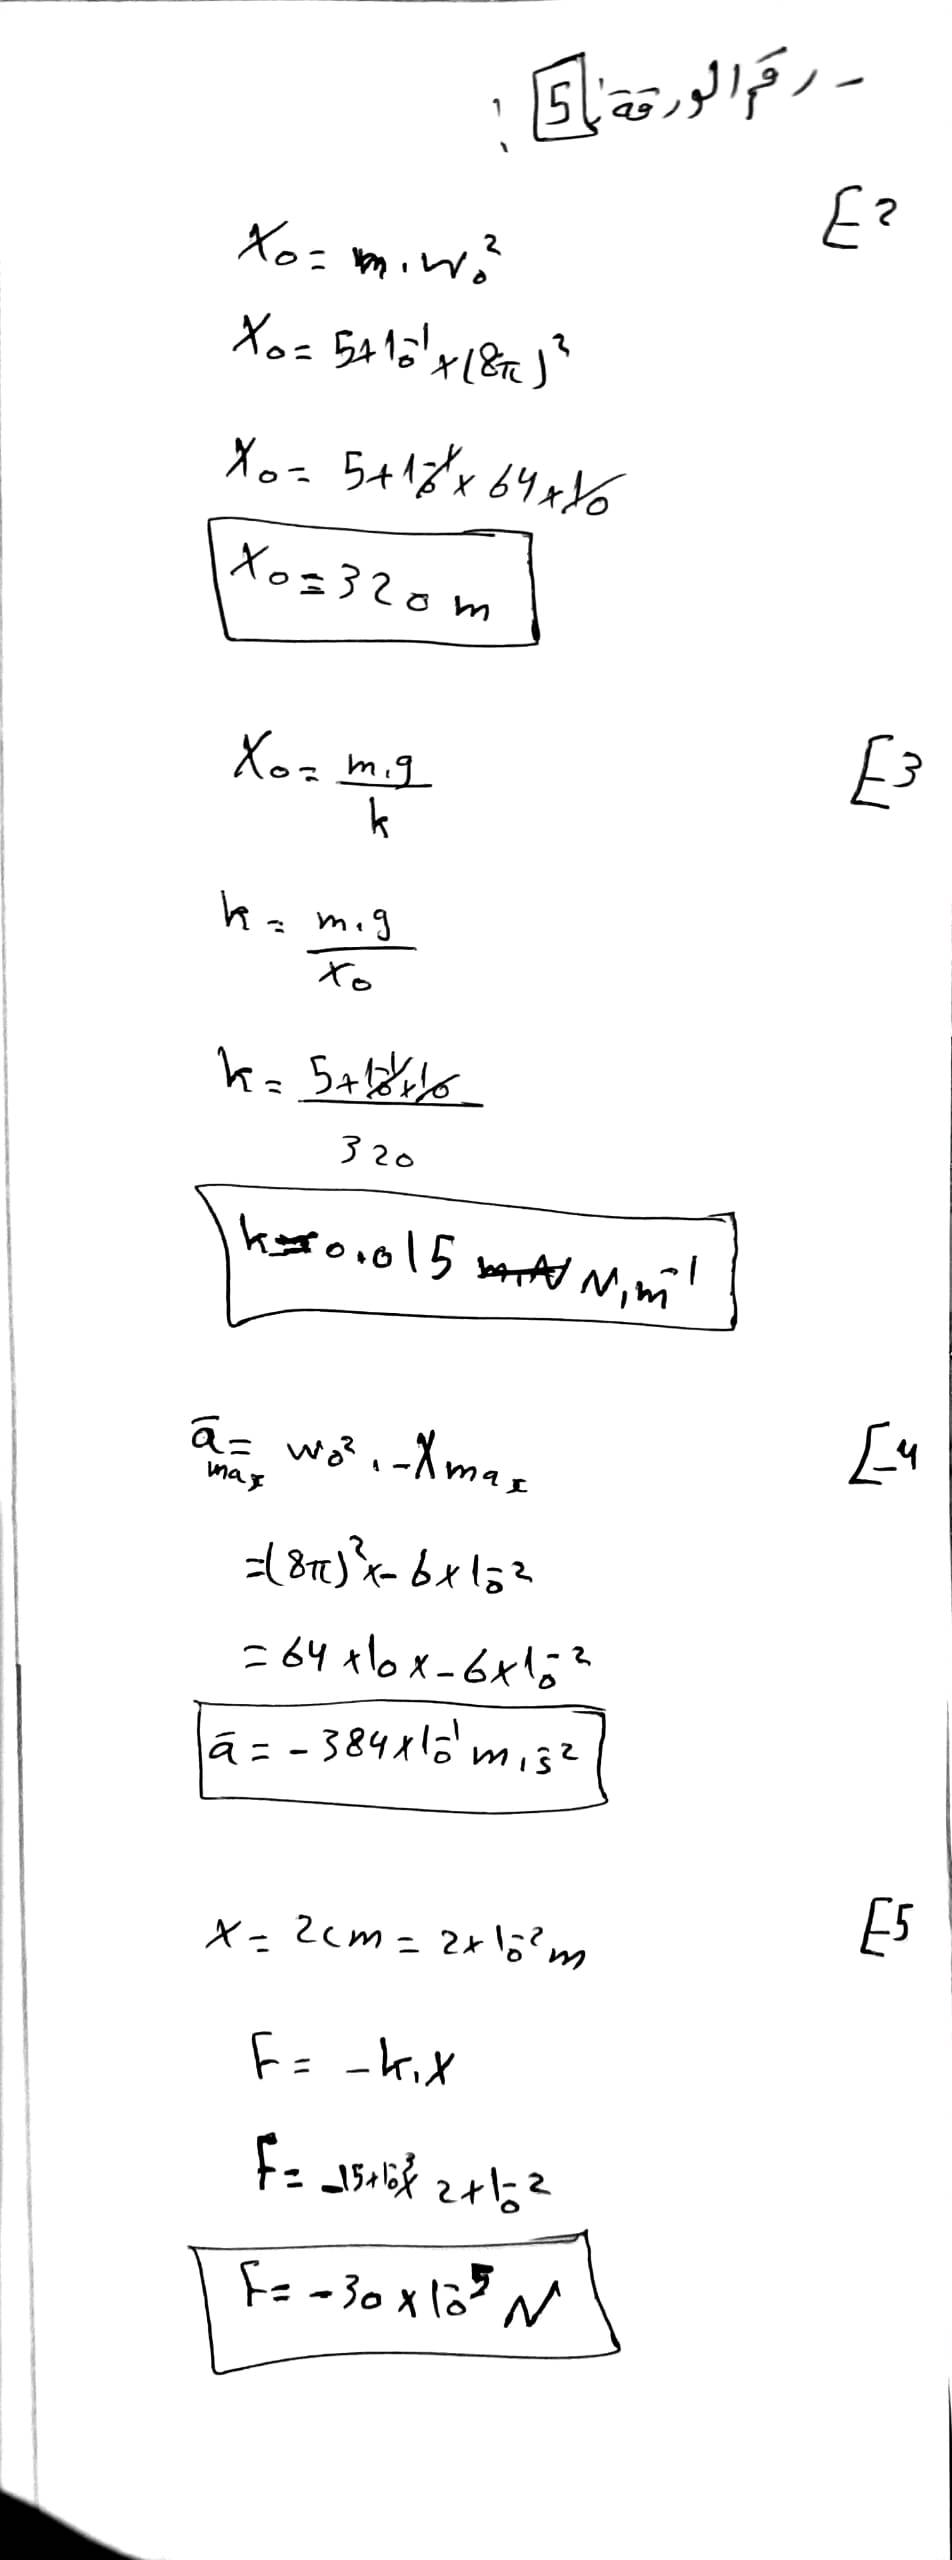 - رقم الورقة: 5 :
E2
X₀ = m . w₀²
X₀ = 5×10⁻¹×(8π)²
X₀ = 5×10⁻¹× 64×10
X₀ = 320 m
E3
X₀ = m.g / k
k = m.g / x₀
k = 5×10⁻¹×10 / 320
k = 0.015 N.m⁻¹
E4
a⁻ max = w₀² . -X max
=(8π)²×- 6×10⁻²
= 64 ×10 ×-6×10⁻²
a⁻ = - 384×10⁻¹ m.s⁻²
E5
X = 2cm = 2×10⁻² m
F = - k.X
F = -15×10⁻³× 2×10⁻²
F = -30 × 10⁻⁵ N